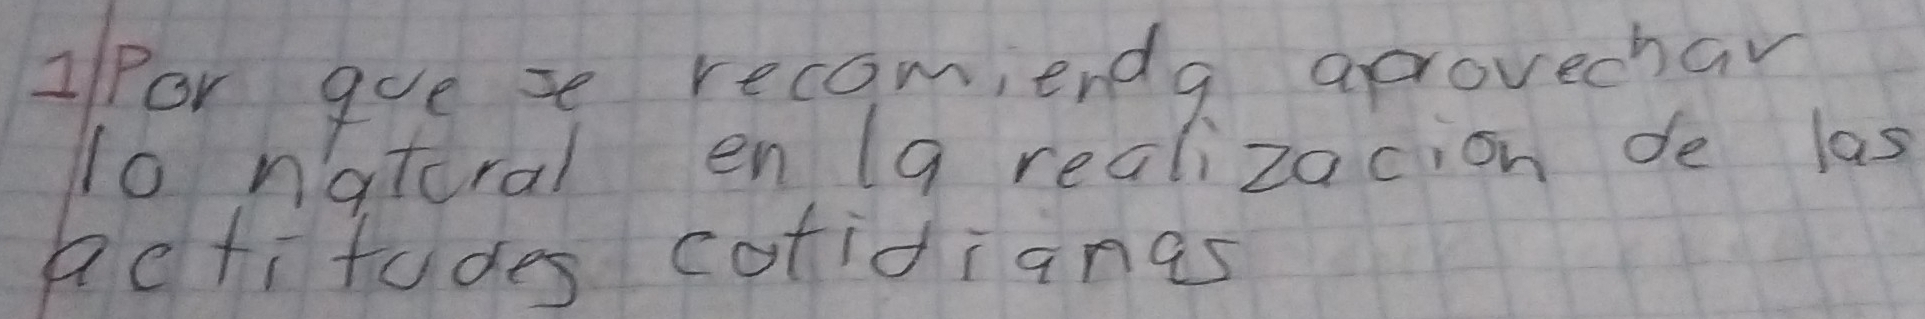 1 Por que se recomienda aprovechar
lo natural en la realizacion de las
actitudes cotidianas